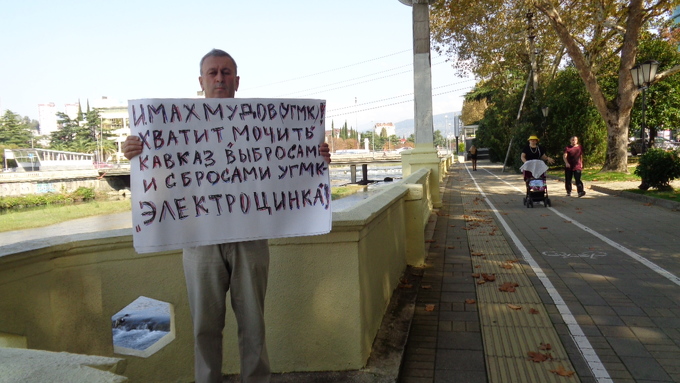 И. МАХМУДОВ(УГМК)!
ХВАТИТ МОЧИТЬ
КАВКАЗ ВЫБРОСАМИ
И СБРОСАМИ УГМК-
"ЭЛЕКТРОЦИНКА"!